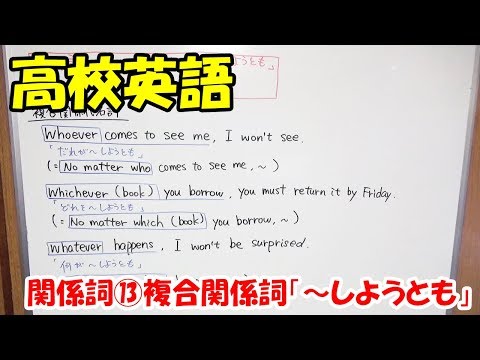 高校英語
ようとも」
複合関係代名詞
Whoever comes to see me, I won't see.
「だれが〜しようとも」
(= No matter who comes to see me, ~ )
Whichever (book) you borrow, you must return it by Friday.
「どれを〜しようとも」
(= No matter which (book) you borrow, ~ )
Whatever happens, I won't be surprised.
「何が〜しようとも」
関係詞⑬複合関係詞「〜しようとも」